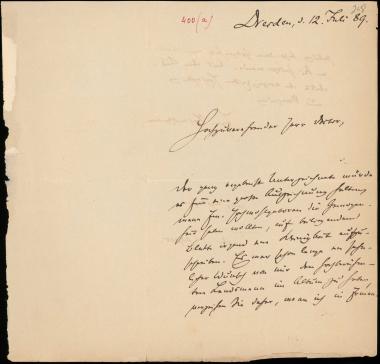 400 (a)
Dresden, d. 12. Juli 89.
Hochzuverehrender Herr Doctor,
Der ganz ergebenst Unterzeichnete würde
es für eine große Auszeichnung halten,
wenn Euer Hochwohlgeboren die Gewogen-
heit haben wollten, auf beiliegendem
Blatte irgend eine Kleinigkeit aufzu-
schreiben. Es war schon lange ein sehn-
licher Wunsch von mir den hochberühm-
ten Landsmann im Album zu haben,
verzeihen Sie daher, wenn ich in